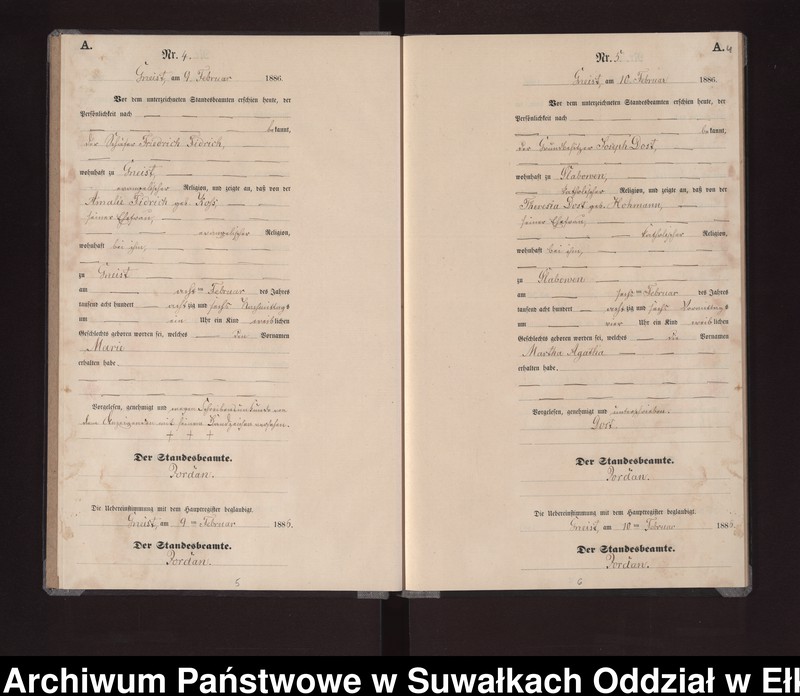 A.
Nr. 4.
Gneist, am 9. Februar 1886.
Vor dem unterzeichneten Standesbeamten erschien heute, der
Persönlichkeit nach
bekannt,
der Schäfer Friedrich Fidrich,
wohnhaft zu Gneist,
evangelischer Religion, und zeigte an, daß von der
Amalie Fidrich geb. Groß,
seiner Ehefrau,
evangelischer Religion,
wohnhaft bei ihm,
zu Gneist
am acht ten Februar des Jahres
tausend acht hundert achtzig und sechs Nachmittags
um ein Uhr ein Kind weiblichen
Geschlechts geboren worden sei, welches den Vornamen
Marie
erhalten habe.
Vorgelesen, genehmigt und wegen Schreibensunkunde von
dem Anzeigenden mit seinem Handzeichen versehen.
+ + +
Der Standesbeamte.
Jordan.
Die Uebereinstimmung mit dem Hauptregister beglaubigt.
Gneist, am 9 ten Februar 1886.
Der Standesbeamte.
Jordan.
5
A. 4
Nr. 5.
Gneist, am 10. Februar 1886.
Vor dem unterzeichneten Standesbeamten erschien heute, der
Persönlichkeit nach
bekannt,
der Grundbesitzer Joseph Dost,
wohnhaft zu Glabowen,
katholischer Religion, und zeigte an, daß von der
Theresia Dost geb. Hohmann,
seiner Ehefrau,
katholischer Religion,
wohnhaft bei ihm,
zu Glabowen
am sechs ten Februar des Jahres
tausend acht hundert achtzig und sechs Vormittags
um vier Uhr ein Kind weiblichen
Geschlechts geboren worden sei, welches die Vornamen
Martha Agatha
erhalten habe.
Vorgelesen, genehmigt und unterschrieben.
Dost.
Der Standesbeamte.
Jordan.
Die Uebereinstimmung mit dem Hauptregister beglaubigt.
Gneist, am 10 ten Februar 1886.
Der Standesbeamte.
Jordan.
6
Archiwum Państwowe w Suwałkach Oddział w Ełk